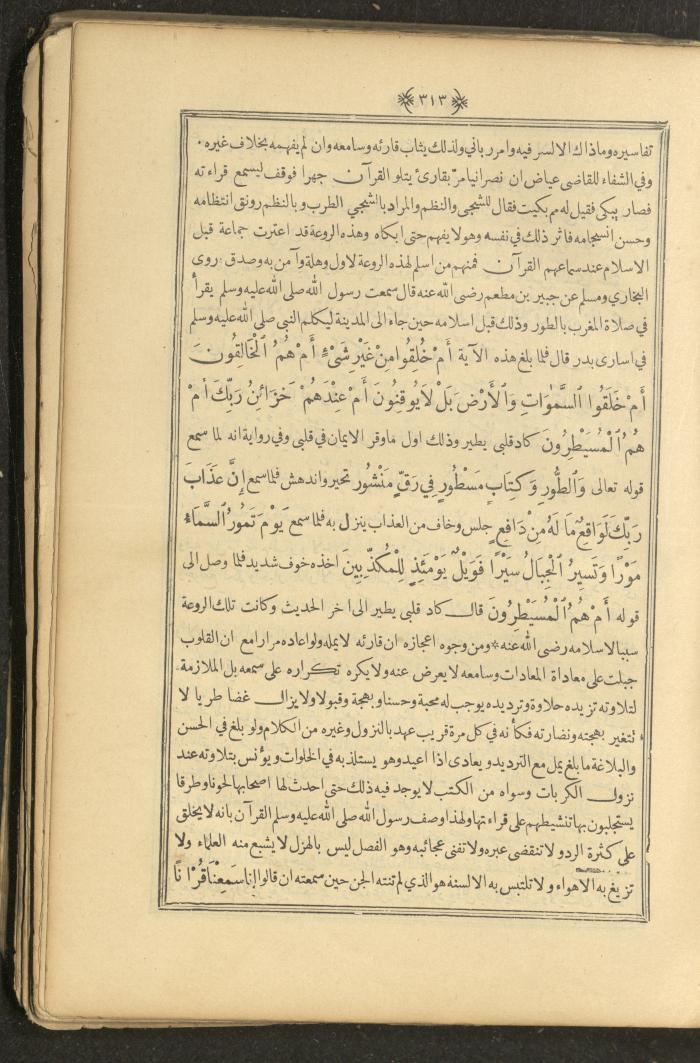 ٣١٣
تفاسيره وماذاك الالسر فيه وامر رباني ولذلك يثاب قارئه وسامعه وان لم يفهمه بخلاف غيره ·
وفي الشفاء للقاضى عياض ان نصرانيا مرّ بقارئ يتلو القرآن جهرا فوقف ليسمع قراءته
فصار يبكى فقيل له مم بكيت فقال للشجى والنظم والمراد بالشجي الطرب وبالنظم رونق انتظامه
وحسن انسجامه فاثر ذلك في نفسه وهو لا يفهم حتى ابكاه وهذه الروعة قد اعترت جماعة قبل
الاسلام عند سماعهم القرآن فمنهم من اسلم لهذه الروعة لاول وهلة وآمن به وصدق · روى
البخاري ومسلم عن جبير بن مطعم رضى الله عنه قال سمعت رسول الله صلى الله عليه وسلم يقرأ
في صلاة المغرب بالطور وذلك قبل اسلامه حين جاء الى المدينة ليكلم النبى صلى الله عليه وسلم
في اسارى بدر قال فلما بلغ هذه الآية أَمْ خُلِقُوا مِنْ غَيْرِ شَىْءٍ أَمْ هُمُ ٱلْخَالِقُونَ
أَمْ خَلَقُوا ٱلسَّمٰوَاتِ وَٱلْأَرْضَ بَلْ لَا يُوقِنُونَ أَمْ عِنْدَهُمْ خَزَائِنُ رَبِّكَ أَمْ
هُمُ ٱلْمُسَيْطِرُونَ كاد قلبى يطير وذلك اول ماوقر الايمان في قلبى وفي رواية انه لما سمع
قوله تعالى وَٱلطُّورِ وَكِتَابٍ مَسْطُورٍ فِي رَقٍّ مَنْشُورٍ تحير واندهش فلما سمع إِنَّ عَذَابَ
رَبِّكَ لَوَاقِعٌ مَا لَهُ مِنْ دَافِعٍ جلس وخاف من العذاب ينزل به فلما سمع يَوْمَ تَمُورُ ٱلسَّمَاءُ
مَوْرًا وَتَسِيرُ ٱلْجِبَالُ سَيْرًا فَوَيْلٌ يَوْمَئِذٍ لِلْمُكَذِّبِينَ اخذه خوف شديد فلما وصل الى
قوله أَمْ هُمُ ٱلْمُسَيْطِرُونَ قال كاد قلبى يطير الى اخر الحديث وكانت تلك الروعة
سببا لاسلامه رضى الله عنه * ومن وجوه اعجازه ان قارئه لا يمله ولو اعاده مرارا مع ان القلوب
جبلت على معاداة المعادات وسامعه لا يعرض عنه ولا يكره تكراره على سمعه بل الملازمة
لتلاوته تزيده حلاوة وترديده يوجب له محبة وحسنا وبهجة وقبولا ولا يزال غضا طريا لا
تتغير بهجته ونضارته فكأنه في كل مرة قريب عهد بالنزول وغيره من الكلام ولو بلغ في الحسن
والبلاغة ما بلغ يمل مع الترديد ويعادى اذا اعيد وهو يستلذ به في الخلوات ويؤنس بتلاوته عند
نزول الكربات وسواه من الكتب لا يوجد فيه ذلك حتى احدث لها اصحابها لحونا وطرقا
يستجلبون بها تنشيطهم على قراءتها ولهذا وصف رسول الله صلى الله عليه وسلم القرآن بانه لا يخلق
على كثرة الرد ولا تنقضى عبره ولا تفنى عجائبه وهو الفصل ليس بالهزل لا يشبع منه العلماء ولا
تزيغ به الاهواء ولا تلتبس به الالسنة هو الذي لم تنته الجن حين سمعته ان قالوا إِنَا سَمِعْنَا قُرْآنًا